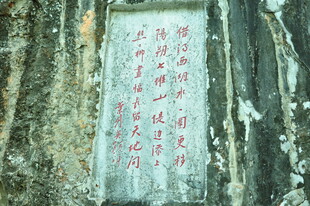 借得西湖水一圜更移
陽朔七堆山堤边添上
丝丝柳畫幅長留天地间